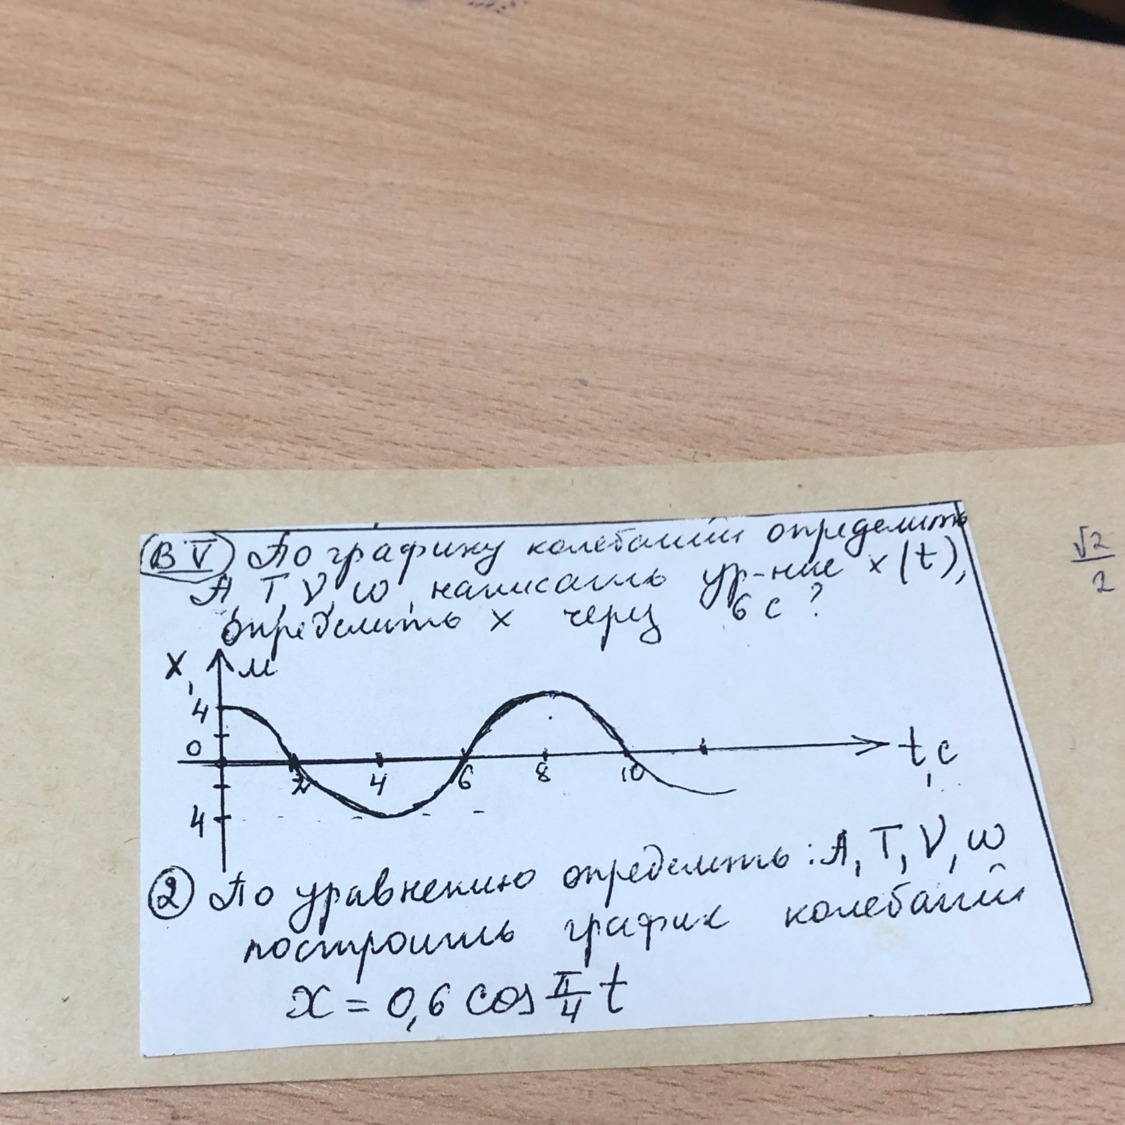 В V По графику колебаний определить
A, T, ν, ω, написать ур-ние x(t),
определить x через 6 с?
x, м
4
0
2 4 6 8 10
t, с
4
2 По уравнению определить: A, T, ν, ω
построить график колебаний
x = 0,6 cos π/4 t
√2/2